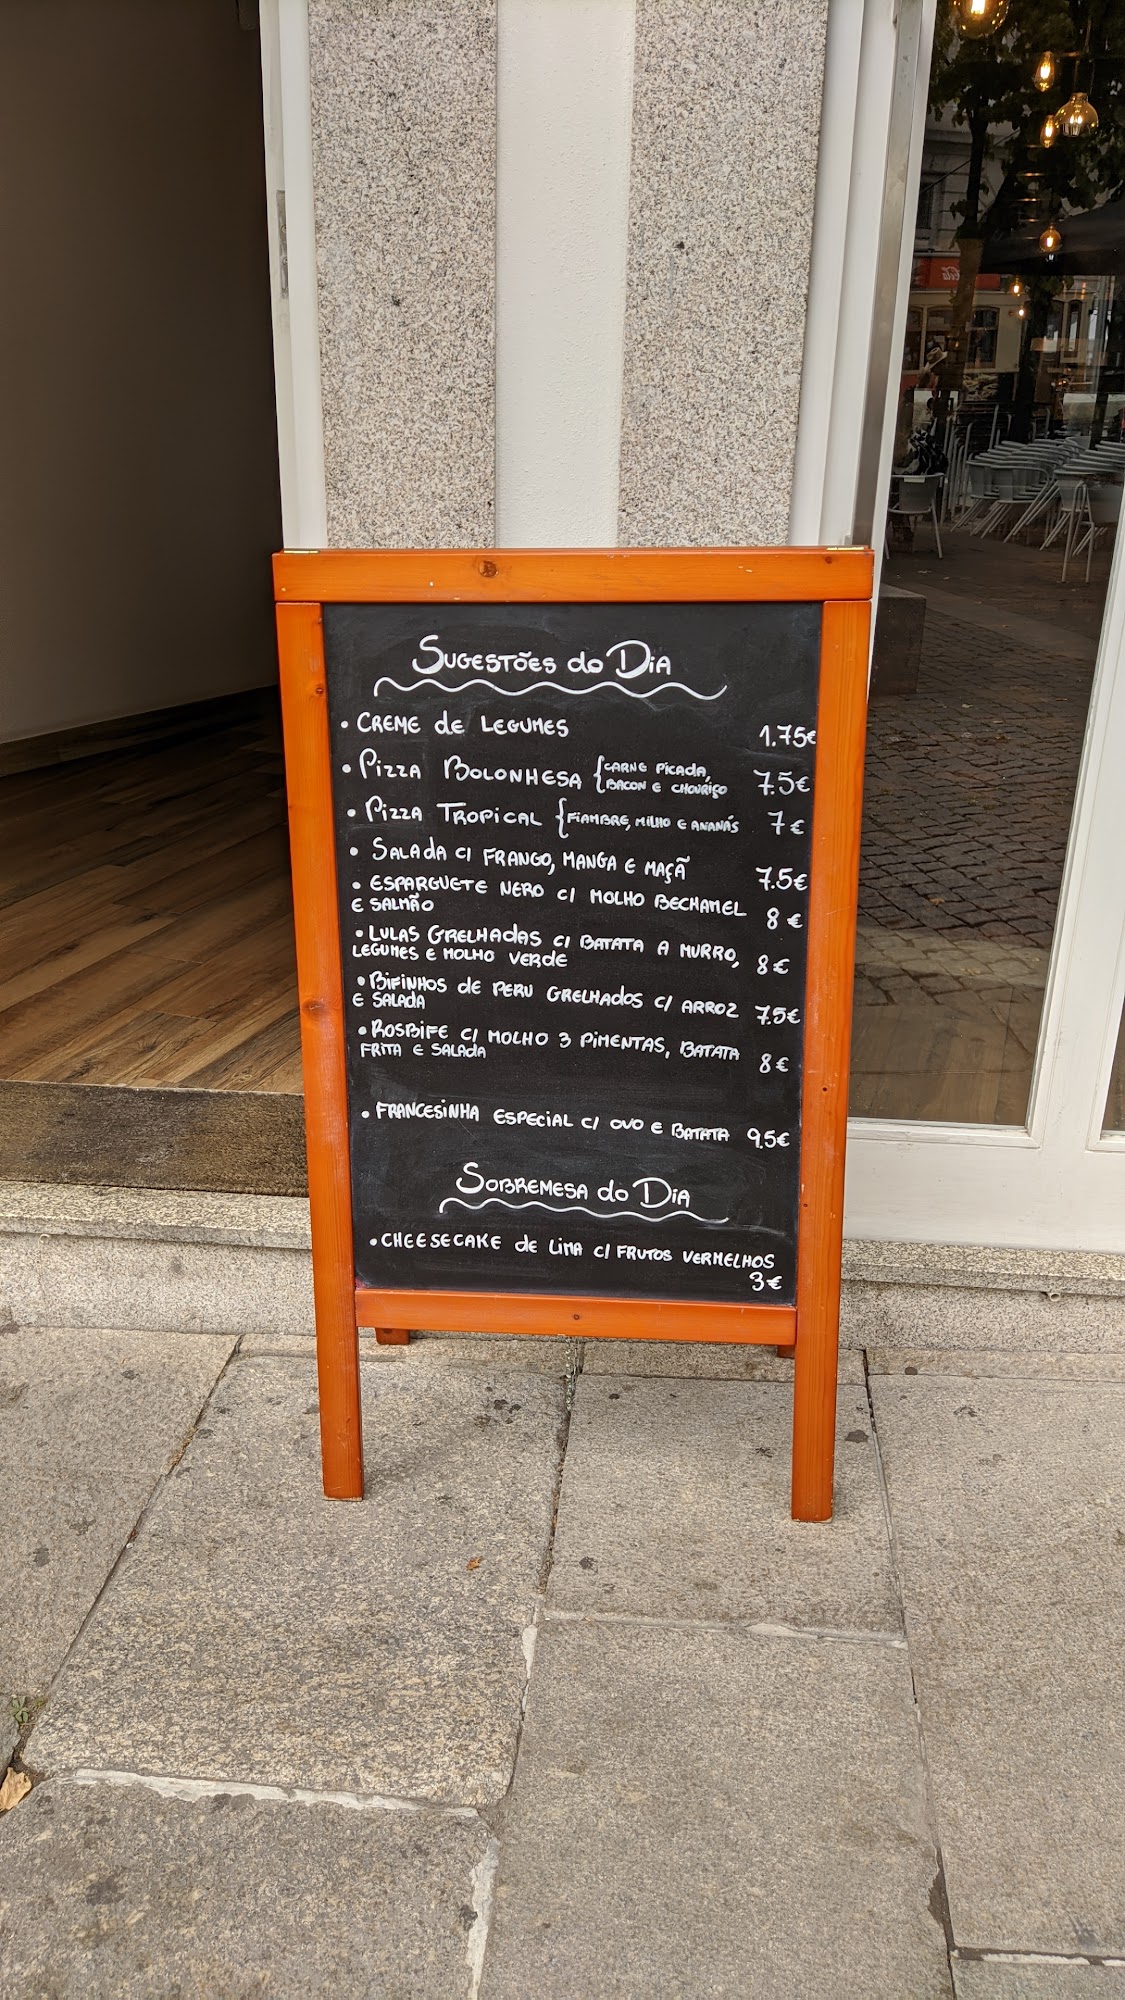 Sugestões do Dia
• Creme de Legumes 1.75€
• Pizza Bolonhesa { carne picada, bacon e chouriço 7.5€
• Pizza Tropical { fiambre, milho e ananás 7€
• Salada c/ frango, manga e maçã 7.5€
• Esparguete nero c/ molho bechamel
e salmão 8€
• Lulas Grelhadas c/ batata a murro,
legumes e molho verde 8€
• Bifinhos de peru grelhados c/ arroz
e salada 7.5€
• Rosbife c/ molho 3 pimentas, batata
frita e salada 8€
• Francesinha especial c/ ovo e batata 9.5€
Sobremesa do Dia
• Cheesecake de lima c/ frutos vermelhos
3€